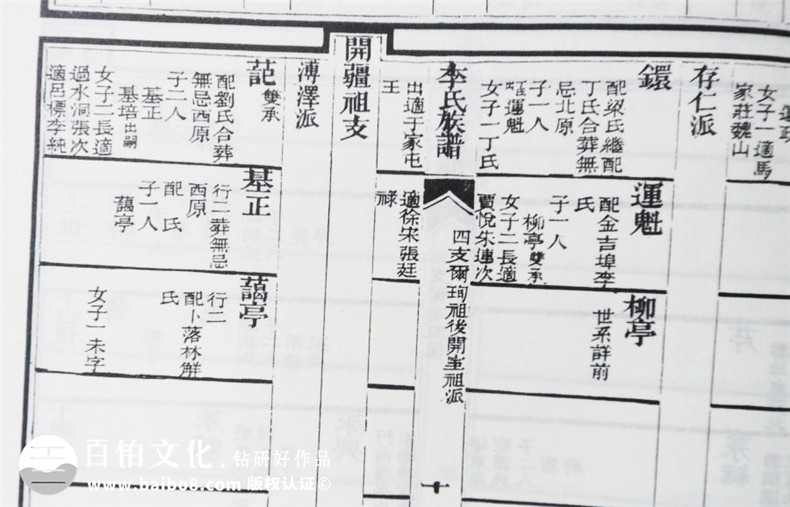 女子一適馬
家莊魏山
存仁派
鐶
配梁氏繼配
丁氏合葬無
忌北原
子一人
運魁
女子一丁氏
運魁
配金吉埠李
氏
子一人
柳亭雙承
女子二長適
賈悅朱連次
柳亭
世系詳前
李氏族譜
四支爾珣祖後開生祖派
十
出適于家屯
王
適徐宋張廷
祿
開疆祖支
溥澤派
范
雙承
配劉氏合葬
無忌西原
子二人
基正
基培出嗣
女子二長適
過水洞張次
適呂標李純
基正
行二葬無忌
西原
配 氏
子一人
藹亭
藹亭
行二
配卜落林解
氏
女子一未字
百铂文化
钻研好作品
www.baibo8.com 版权认证©